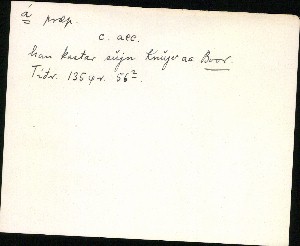 á præp.
c. acc.
han kastar sujn Knujv aa Boor.
Tidr. 1354 r. 56².